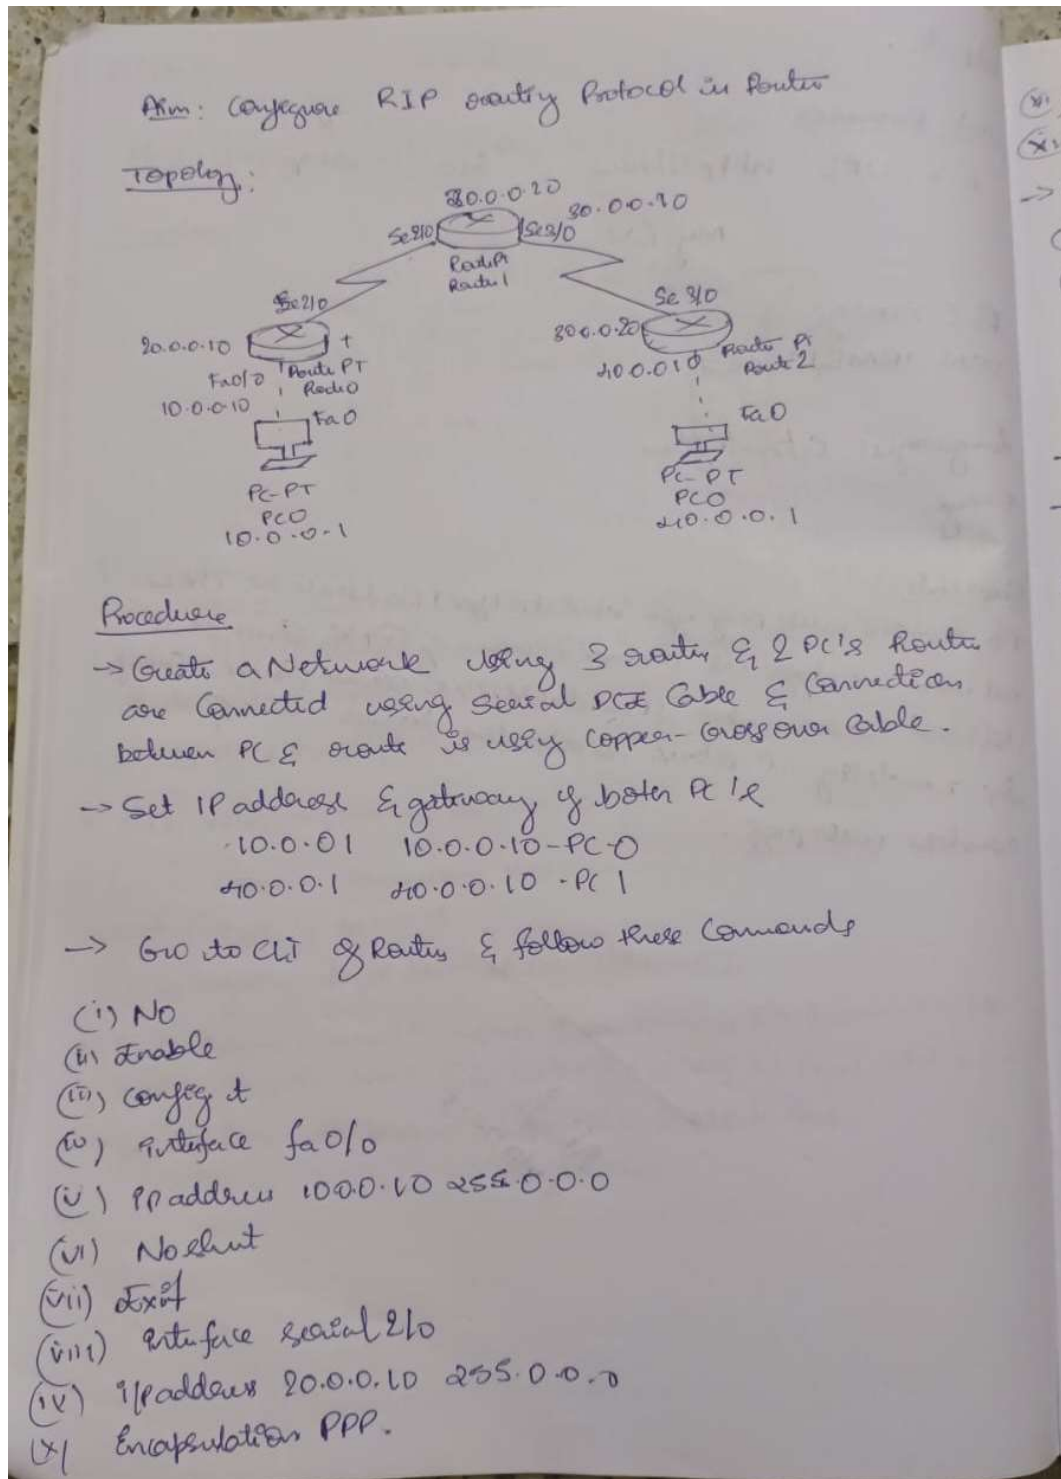 Aim: Configure RIP routing Protocol in Router
Topology:
20.0.0.20
30.0.0.10
Se2/0
Se3/0
Router Pt
Router 1
Se2/0
Se 3/0
20.0.0.10
30.0.0.20
Fa0/0
Route PT
Router Pt
Route 2
40.0.0.10
10.0.0.10
Fa0
Fa0
PC-PT
PC0
10.0.0.1
PC-PT
PC0
40.0.0.1
Procedure
→ Create a Network using 3 router & 2 PC's Router
are Connected using Serial DCE Cable & Connection
between PC & route is using Copper-Crossover Cable.
→ Set IP address & gateway of both PC's
10.0.01 10.0.0.10-PC-0
40.0.0.1 40.0.0.10 -PC 1
→ Go to CLI of Routers & follow these Commands
(i) No
(ii) Enable
(iii) Config t
(iv) interface fa0/0
(v) ip address 100.0.10 255.0.0.0
(vi) No shut
(vii) Exit
(viii) interface serial 2/0
(ix) ip address 20.0.0.10 255.0.0.0
(x) Encapsulation PPP.